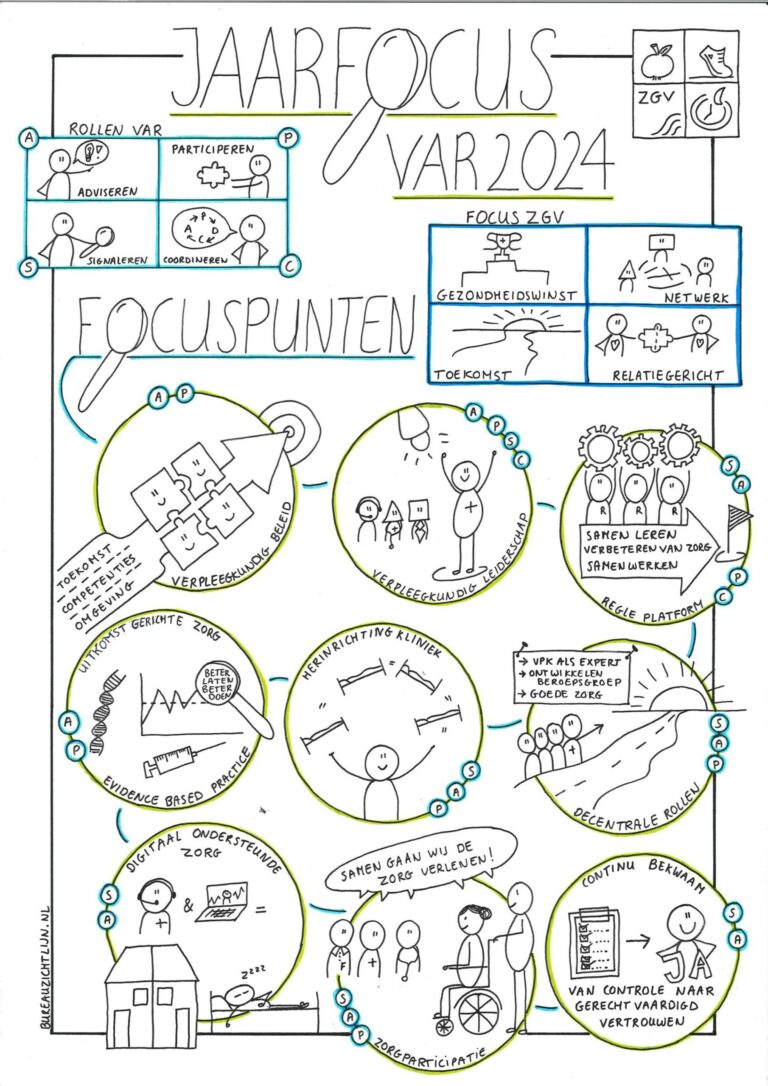 JAARFOCUS
VAR 2024
ZGV
ROLLEN VAR
A
P
S
C
ADVISEREN
PARTICIPEREN
SIGNALEREN
P
A D
C
COORDINEREN
FOCUS ZGV
GEZONDHEIDSWINST
NETWERK
TOEKOMST
RELATIEGERICHT
FOCUSPUNTEN
A P
TOEKOMST
COMPETENTIES
OMGEVING
VERPLEEGKUNDIG BELEID
A P S C
VERPLEEGKUNDIG LEIDERSCHAP
S A
R R R
SAMEN LEREN
VERBETEREN VAN ZORG
SAMENWERKEN
P C
REGIE PLATFORM
UITKOMST GERICHTE ZORG
BETER
LATEN
BETER
DOEN
A P
EVIDENCE BASED PRACTICE
HERINRICHTING KLINIEK
S A P
→ VPK ALS EXPERT
→ ONTWIKKELEN
BEROEPSGROEP
→ GOEDE ZORG
S A P
DECENTRALE ROLLEN
DIGITAAL ONDERSTEUNDE
ZORG
S A
& =
ZZZZ
SAMEN GAAN WIJ DE
ZORG VERLENEN!
F
S A P
ZORGPARTICIPATIE
CONTINU BEKWAAM
S A
JA
VAN CONTROLE NAAR
GERECHTVAARDIGD
VERTROUWEN
BUREAUZICHTLIJN.NL